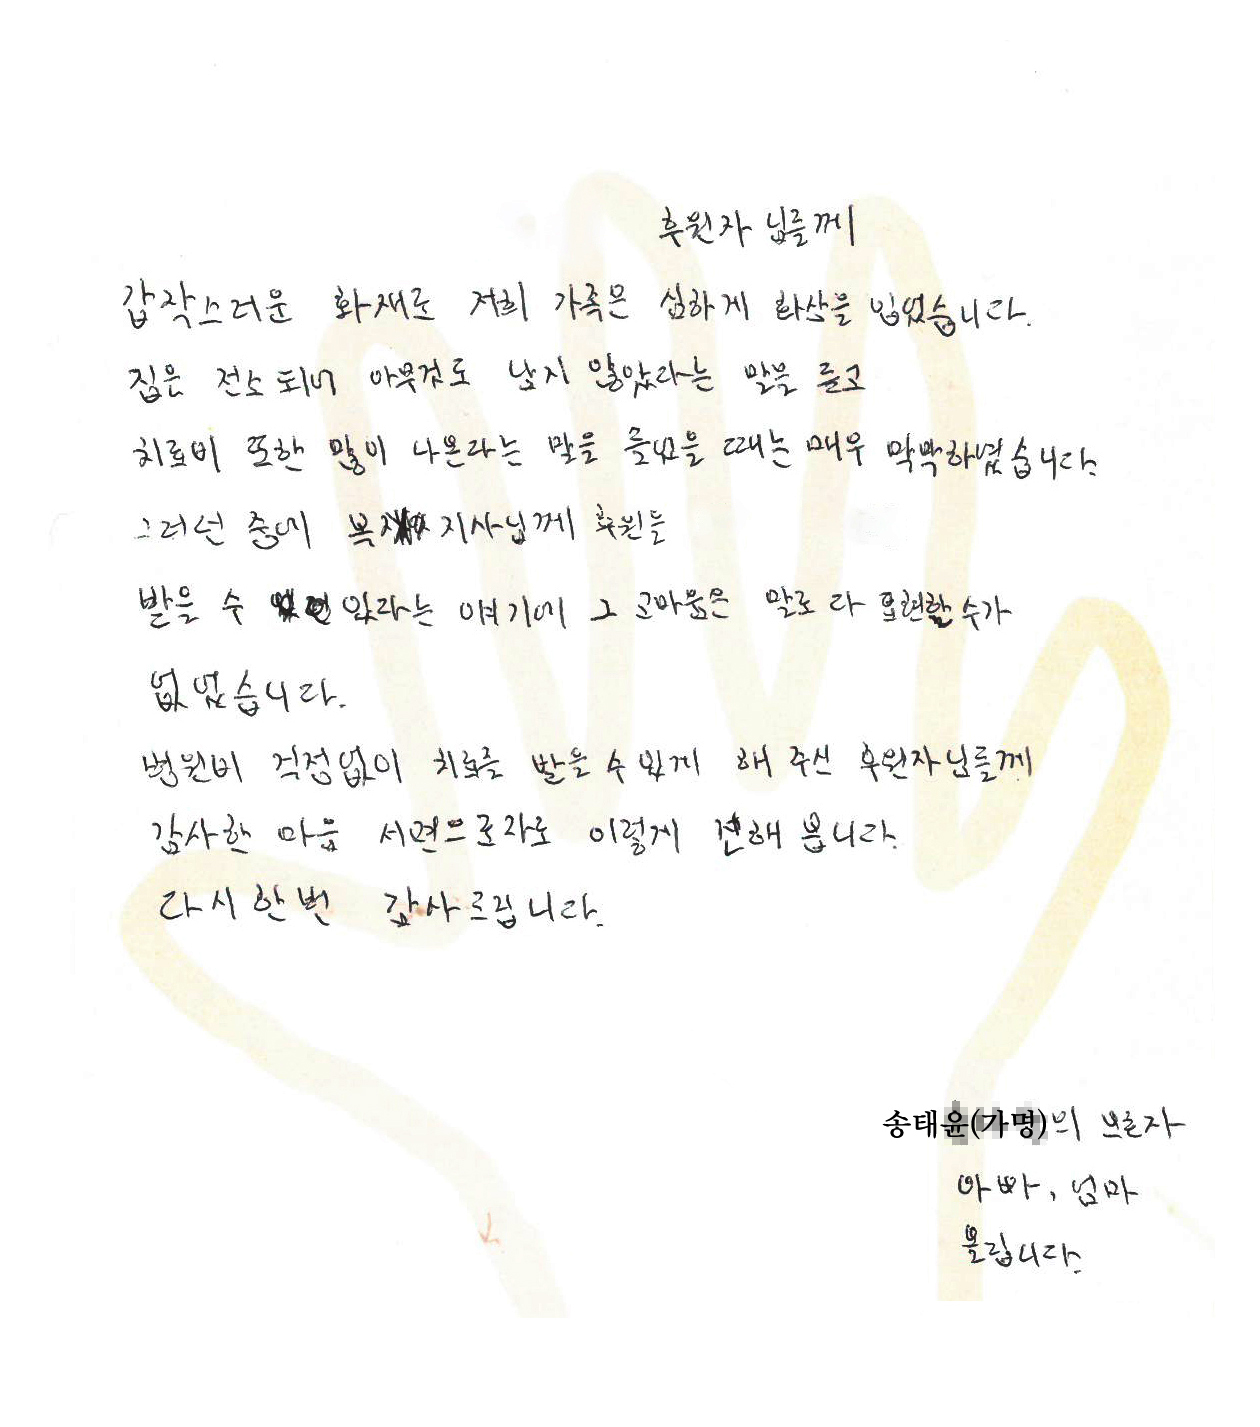 후원자 님들께
갑작스러운 화재로 저희 가족은 심하게 화상을 입었습니다.
집은 전소 되어 아무것도 남지 않았다라는 말을 듣고
치료비 또한 많이 나온다는 말을 들었을 때는 매우 막막하였습니다.
그러던 중에 복지사님께 후원을
받을 수 있다라는 얘기에 그 고마움은 말로 다 표현할 수가
없었습니다.
병원비 걱정없이 치료를 받을 수 있게 해 주신 후원자님들께
감사한 마음 서면으로라도 이렇게 전해 봅니다.
다시 한번 감사드립니다.
송태윤(가명)의 보호자
아빠, 엄마
올립니다.